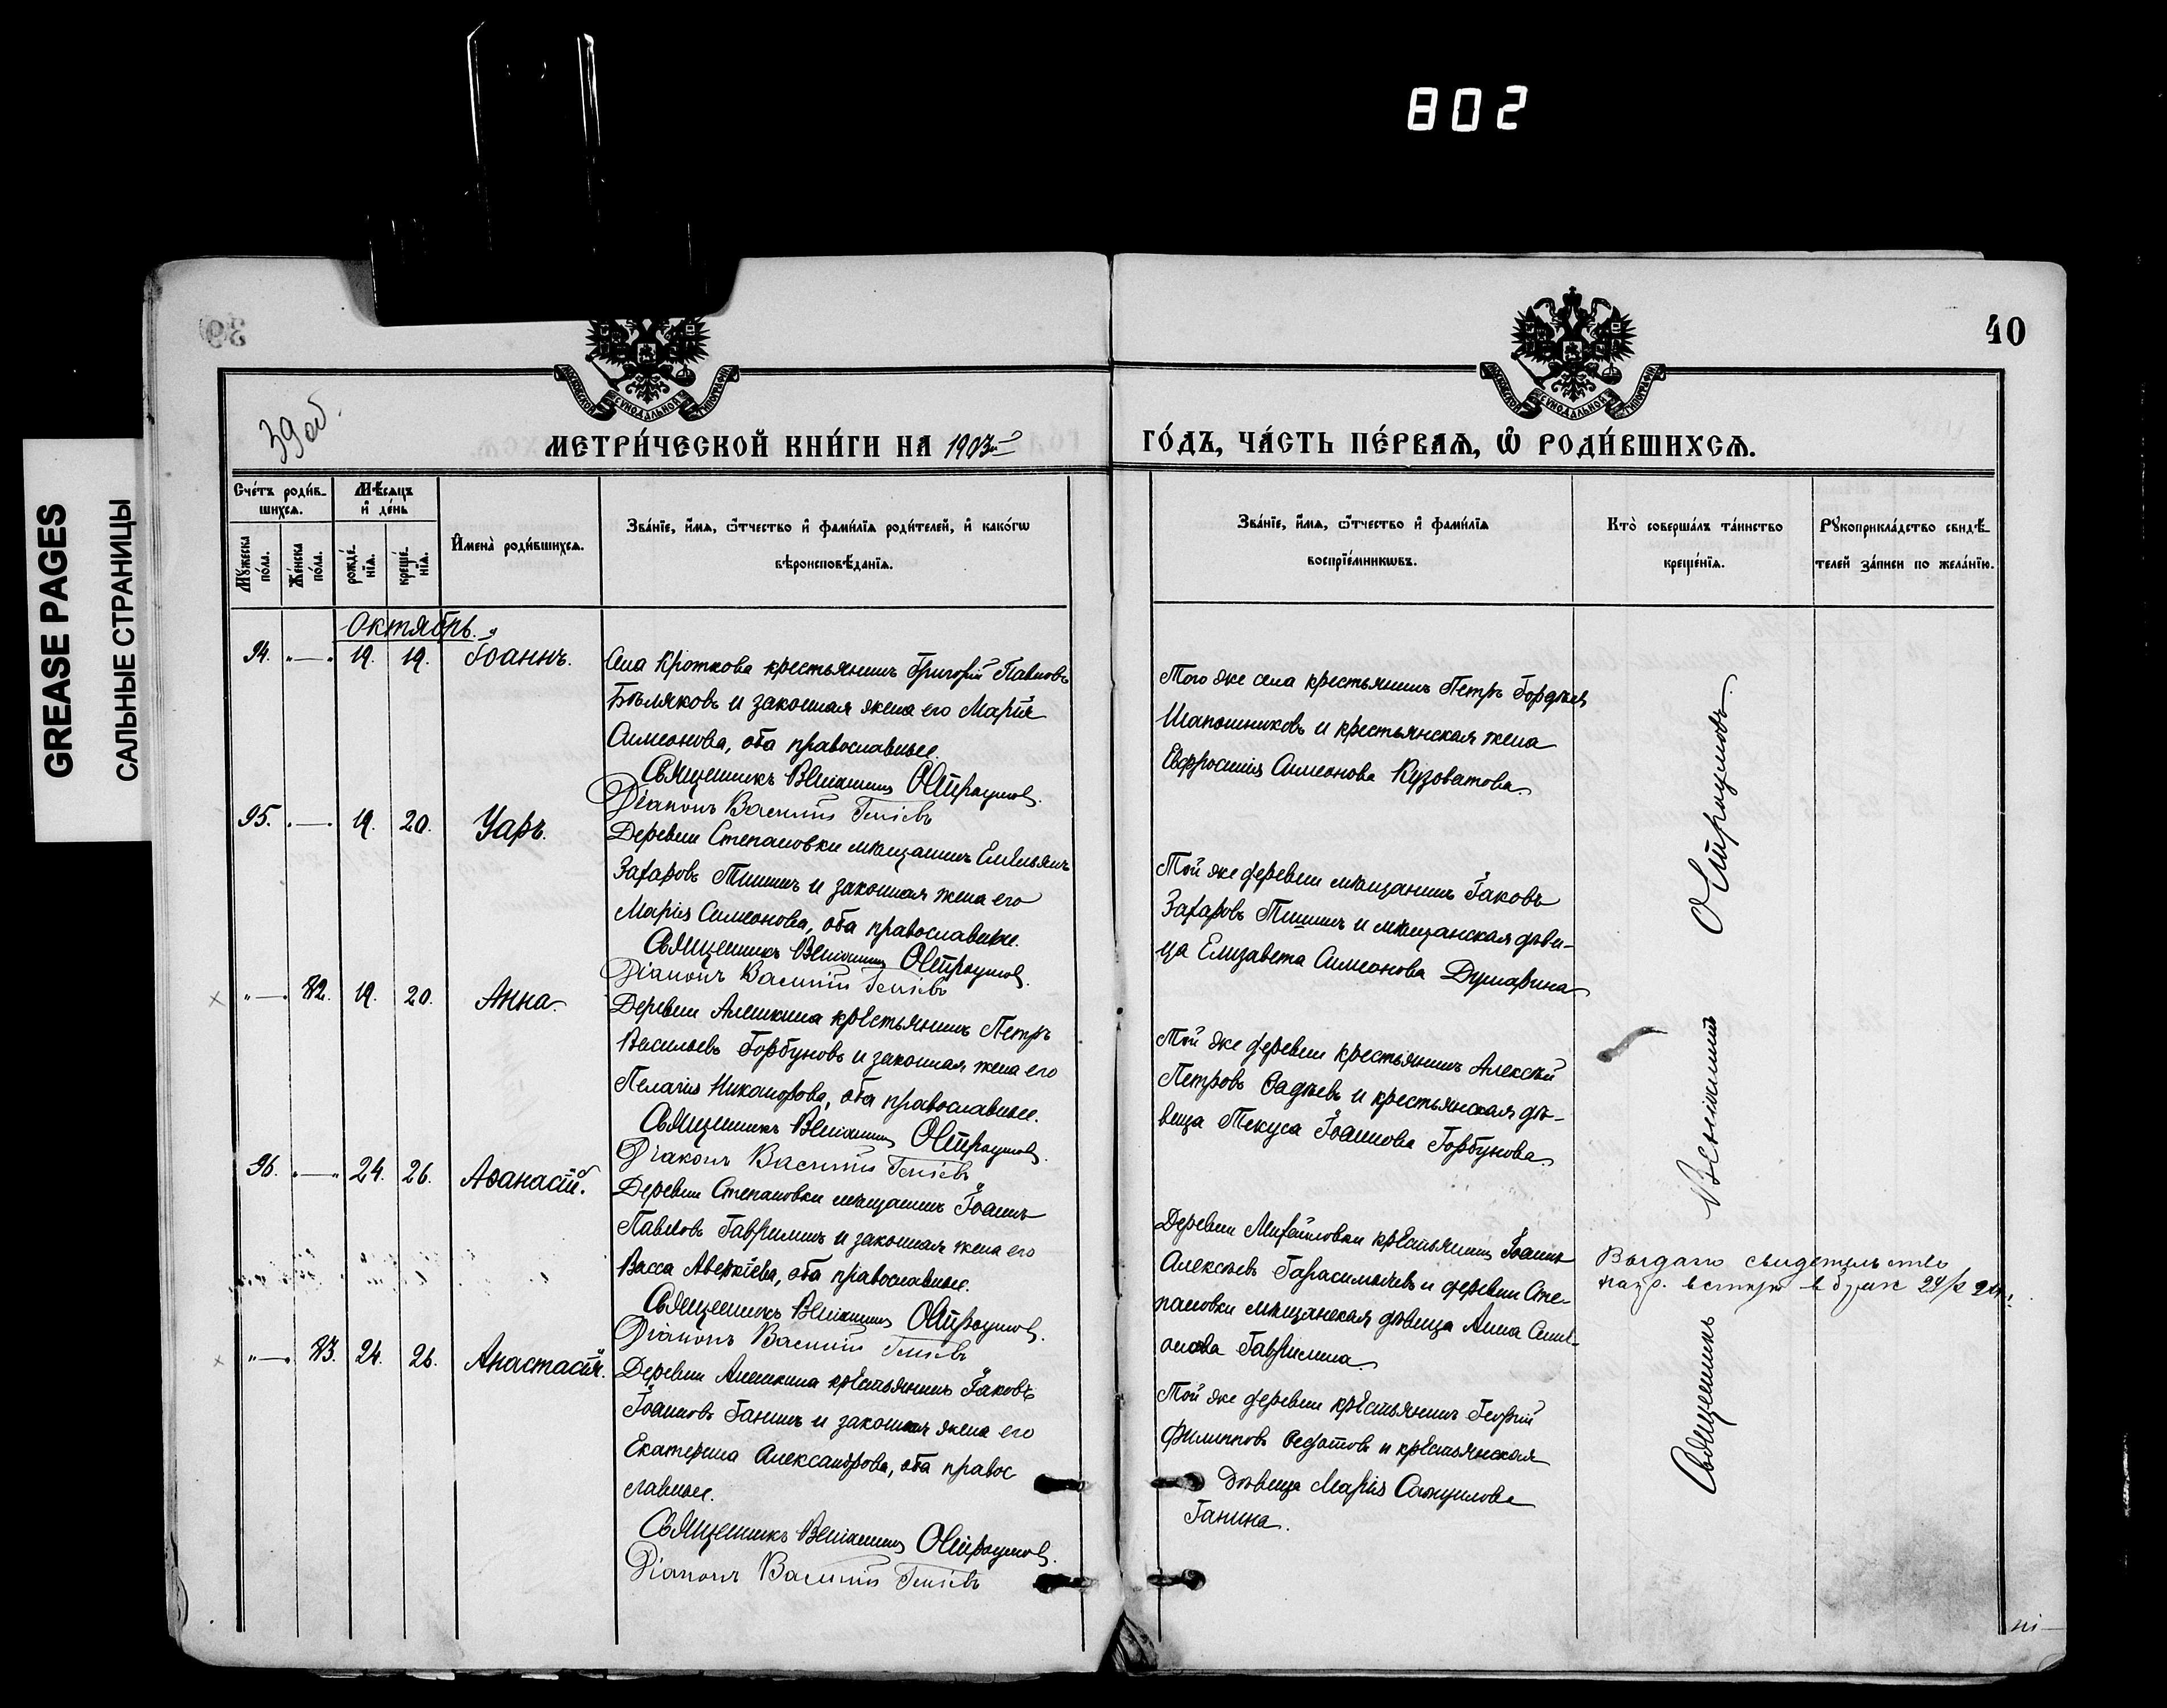 802
GREASE PAGES
САЛЬНЫЕ СТРАНИЦЫ
39
40
39об.
МОСКОВСКОЙ СѴНОДАЛЬНОЙ ТИПОГРАФІИ
МОСКОВСКОЙ СѴНОДАЛЬНОЙ ТИПОГРАФІИ
МЕТРИ́ЧЕСКОЙ КНИ́ГИ НА 1903й
ГО́ДЪ, ЧА́СТЬ ПЕ́РВАѦ, Ѡ҆ РОДИ́ВШИХСѦ.
Сче́тъ роди́в-
шихсѧ.
Мѣ́сѧцъ
и҆ де́нь
Мꙋ́жеска по́ла.
Же́нска по́ла.
рожде́-
нїѧ.
креще́-
нїѧ.
И҆мена̀ роди́вшихсѧ.
Зва́нїе, и҆́мѧ, ѻ҆́тчество и҆ фами́лїѧ роди́телей, и҆ како́гѡ
вѣроисповѣ́данїѧ.
Зва́нїе, и҆́мѧ, ѻ҆́тчество и҆ фами́лїѧ
воспрїе́мникѡвъ.
Кто̀ соверша́лъ та́инство
креще́нїѧ.
Рꙋкоприкла́дство свидѣ́-
телей за́писи по жела́нїю.
Октябрь.
94. "—" 19. 19. Іоаннъ.
Села Кроткова крестьянинъ Григорій Павловъ
Бѣляковъ и законная жена его Марія
Симеонова, оба православные.
Священникъ Веніаминъ Остроумов.
Діаконъ Василій Геніевъ
Того же села крестьянинъ Петръ Гордѣевъ
Шапошниковъ и крестьянская жена
Евфросинія Симеонова Кузоватова.
95. "—" 19. 20. Уаръ.
Деревни Степановки мѣщанинъ Емильянъ
Захаровъ Тишинъ и законная жена его
Марія Симеонова, оба православные.
Священникъ Веніаминъ Остроумов.
Діаконъ Василій Геніевъ
Той же деревни мѣщанинъ Іаковъ
Захаровъ Тишинъ и мѣщанская дѣви-
ца Елизавета Симеонова Думарина
"—" 82. 19. 20. Анна.
Деревни Алешкина крестьянинъ Петръ
Васильевъ Горбуновъ и законная жена его
Пелагія Никанорова, оба православные.
Священникъ Веніаминъ Остроумов.
Діаконъ Василій Геніевъ
Той же деревни крестьянинъ Алексѣй
Петровъ Фадѣевъ и крестьянская дѣ-
вица Текуса Іоаннова Горбунова.
96. "—" 24. 26. Аѳанасій.
Деревни Степановки мѣщанинъ Іоаннъ
Павловъ Гаврилинъ и законная жена его
Васса Аверкіева, оба православные.
Священникъ Веніаминъ Остроумов.
Діаконъ Василій Геніевъ
Деревни Михайловки крестьянинъ Іоаннъ
Алексѣевъ Гарасимычевъ и деревни Сте-
пановки мѣщанская дѣвица Анна Симе-
онова Гаврилина.
Выдано свидетельство
"—" 83. 24. 26. Анастасія.
Деревни Алешкина крестьянинъ Іаковъ
Іоанновъ Ганинъ и законная жена его
Екатерина Александрова, оба правос
лавные.
Священникъ Веніаминъ Остроумов.
Діаконъ Василій Геніевъ
Той же деревни крестьянинъ Георгій
Филипповъ Федотовъ и крестьянская
дѣвица Марія Самуилова
Ганина.
Священникъ Веніаминъ Остроумовъ.